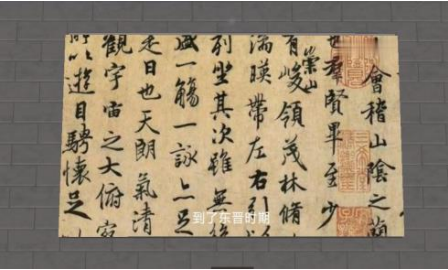 會稽山陰之蘭
也羣賢畢至少
有崇山峻領茂林脩
湍暎帶左右引以
列坐其次雖無絲
盛一觴一詠亦足
是日也天朗氣清
觀宇宙之大俯察
所以遊目騁懷足
到了东晋时期